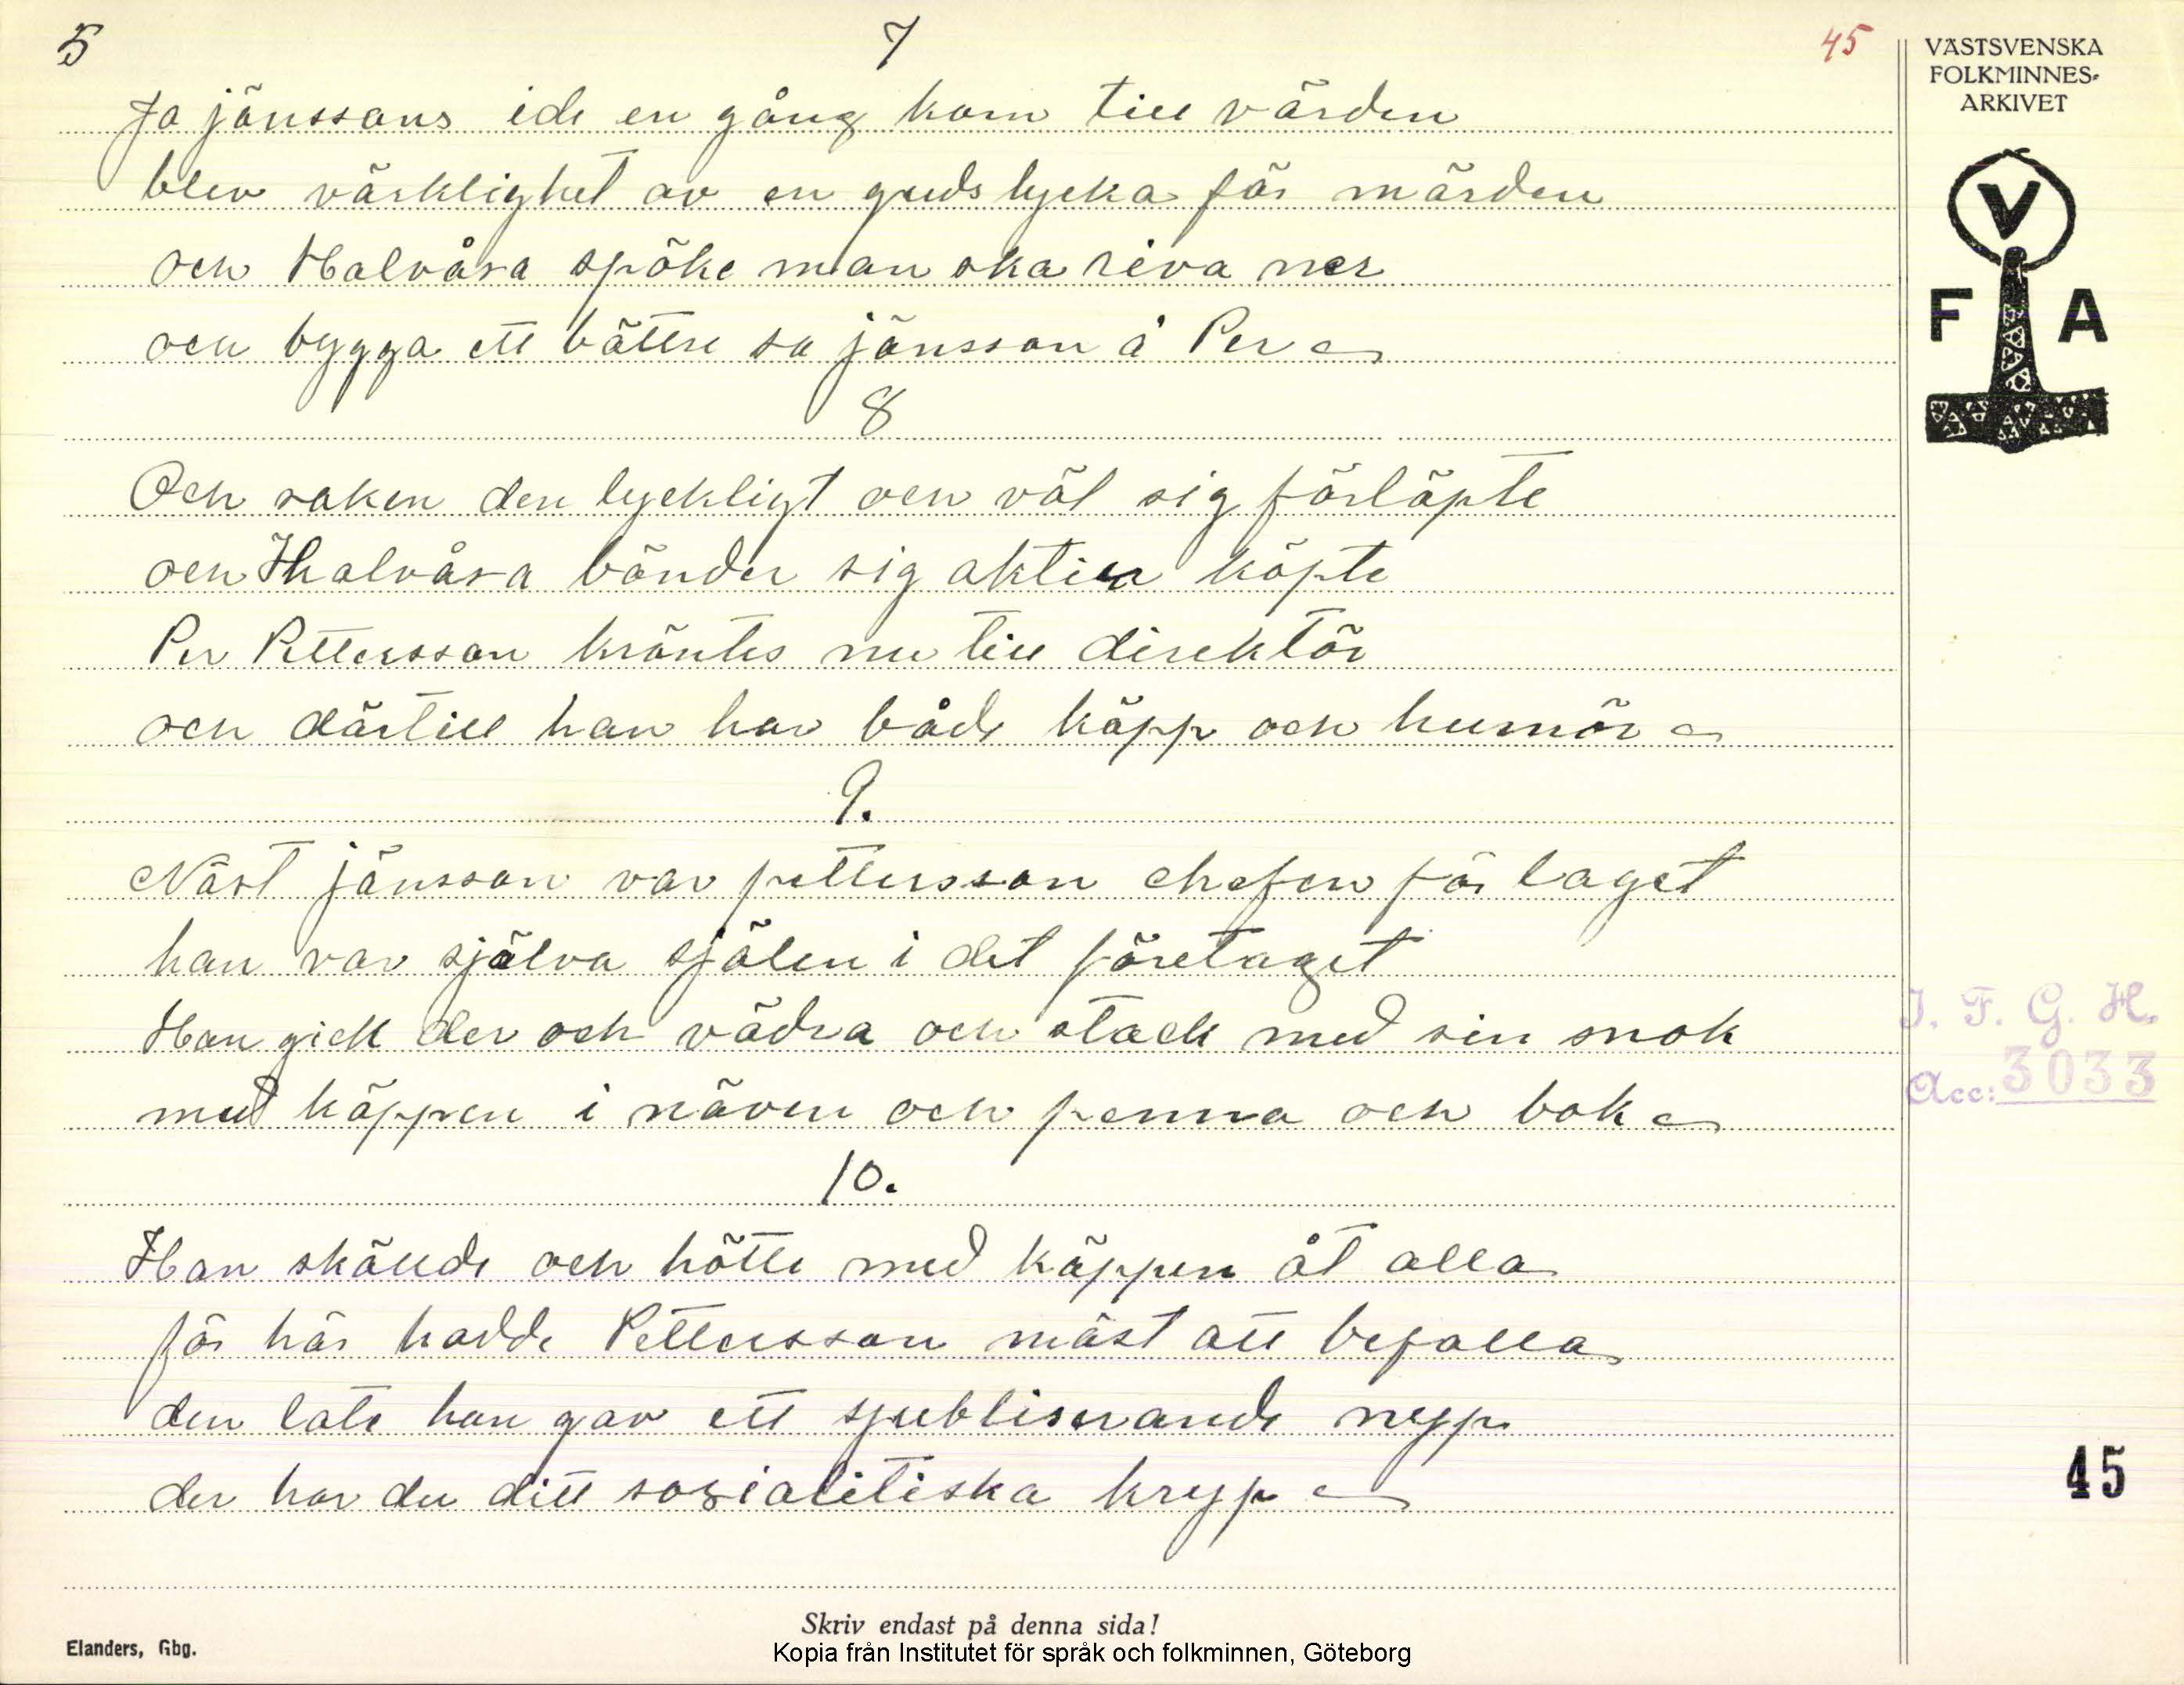 5 7 45
Ja jönssons ide en gång kom till värden
blev värklighet av en guds lycka för mården
och Halvåsa spöke man ska riva ner
och bygga ett bättre sa jönsson å Per
8
Och saken den lyckligt och väl sig förlöpte
och Halvåsa bönder sig aktier köpte
Per Pettersson kröntes nu till direktör
och därtill han har både käpp och humör
9.
Näst jönsson var pettersson chefen för laget
han var själva själen i det företaget
Han gick der och vädra och stack med sin snok
med käppen i näven och penna och bok
10.
Han skällde och hötte med käppen åt alla
för här hadde Pettersson mäst att befalla
den late han gav ett spubliserande nyp
der har du ditt sosialitiska kryp
Skriv endast på denna sida!
Elanders, Gbg.
Kopia från Institutet för språk och folkminnen, Göteborg
VÄSTSVENSKA
FOLKMINNES-
ARKIVET
V
F A
I. F. G. H.
Acc: 3033
45